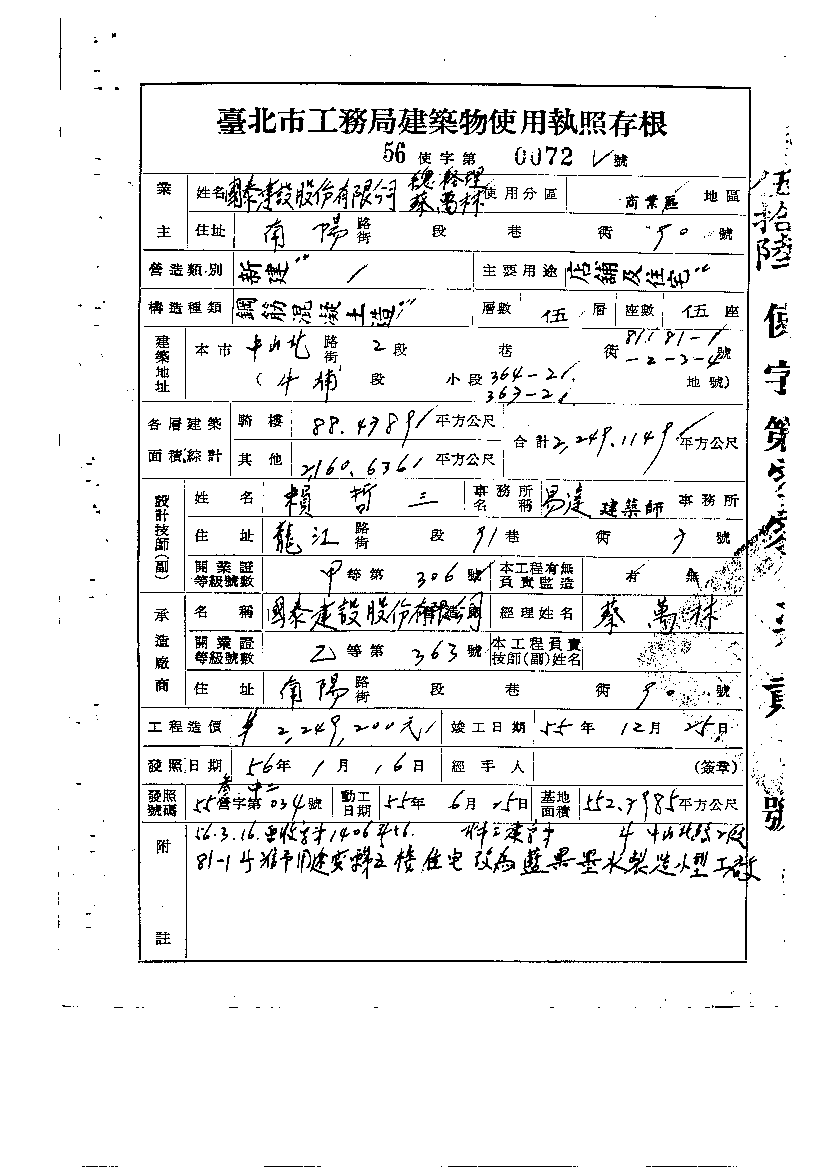 臺北市工務局建築物使用執照存根
56 使字第 0072 號
業主 姓名 國泰建設股份有限公司 總經理 蔡萬林 使用分區 商業區 地區
住址 南陽 路街 段 巷 衖 50 號
營造類別 新建 主要用途 店舖及住宅
構造種類 鋼筋混凝土造 層數 伍 層 座數 伍 座
建築地址 本市 中山北 路街 2 段 巷 衖 81, 81-1 -2-3-4 號
(牛埔 段 小段 364-21, 363-21 地號)
各層建築面積綜計 騎樓 88.4789 平方公尺 合計 2,249.1149 平方公尺
其他 2,160.6361 平方公尺
設計技師(副) 姓名 賴哲三 事務所名稱 易達 建築師 事務所
住址 龍江 路街 段 91 巷 衖 號
開業證等級號數 甲 等第 306 號 本工程有無負責監造 有 無
承造廠商 名稱 國泰建設股份有限公司 經理姓名 蔡萬林
開業證等級號數 乙 等第 363 號 本工程負責技師(副)姓名
住址 南陽 路街 段 巷 衖 50 號
工程造價 2,249,200元 竣工日期 55 年 12 月 25 日
發照日期 56 年 1 月 16 日 經手人 (簽章)
發照號碼 55 營字第 034 號 動工日期 55 年 6 月 25 日 基地面積 552.7985 平方公尺
附註 56.3.16. 字 1406 中山北路二段
81-1 號准予用途變 五樓住宅改為藍黑墨水製造小型工廠
伍拾陸 使字第 號